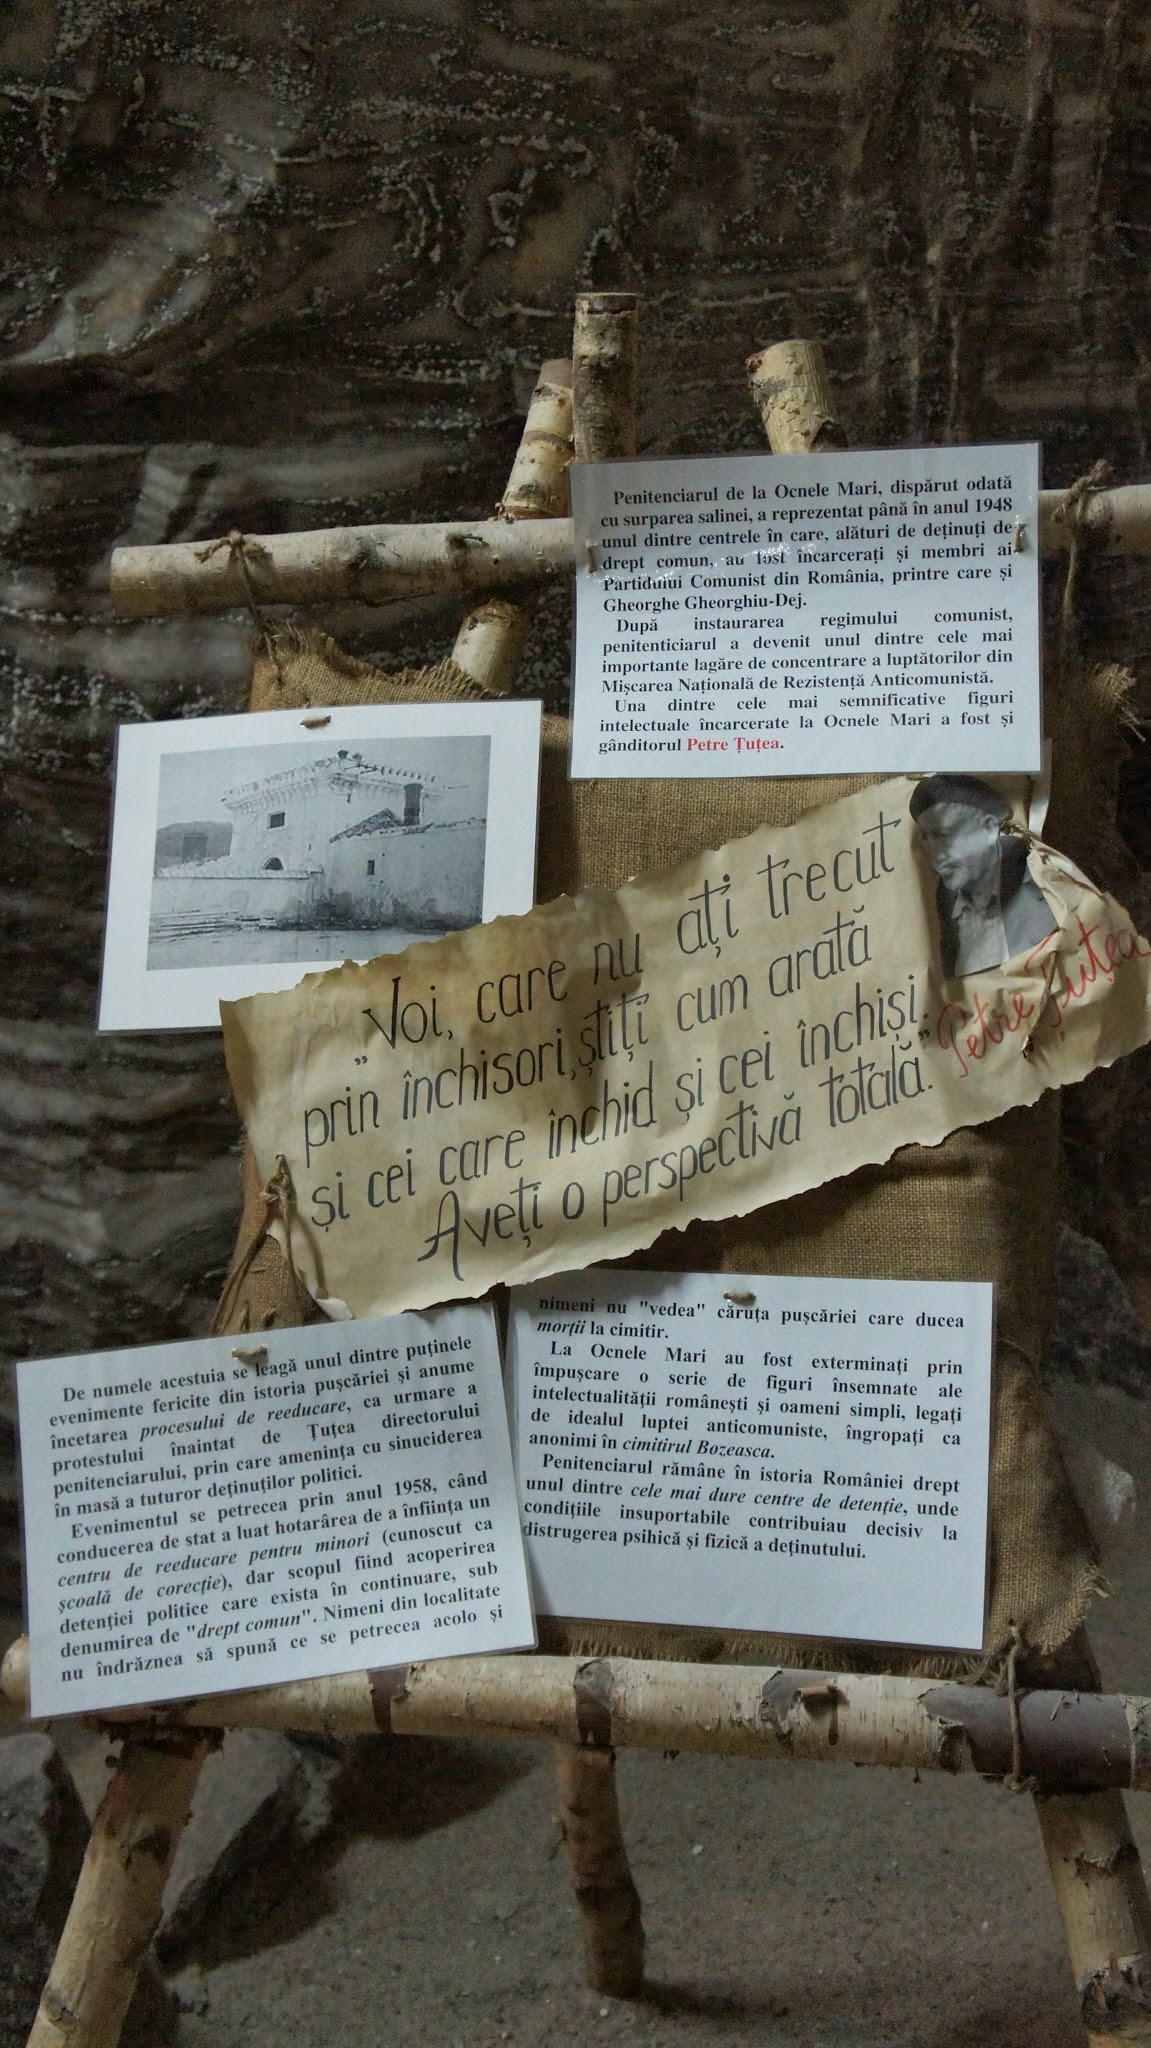 Penitenciarul de la Ocnele Mari, dispărut odată
cu surparea salinei, a reprezentat până în anul 1948
unul dintre centrele în care, alături de deținuți de
drept comun, au fost încarcerați și membri ai
Partidului Comunist din România, printre care și
Gheorghe Gheorghiu-Dej.
După instaurarea regimului comunist,
penitenticiarul a devenit unul dintre cele mai
importante lagăre de concentrare a luptătorilor din
Mișcarea Națională de Rezistență Anticomunistă.
Una dintre cele mai semnificative figuri
intelectuale încarcerate la Ocnele Mari a fost și
gânditorul Petre Țuțea.
„Voi, care nu ați trecut
prin închisori, știți cum arată
și cei care închid și cei închiși.
Aveți o perspectivă totală.”
Petre Țuțea
De numele acestuia se leagă unul dintre puţinele
evenimente fericite din istoria puşcăriei şi anume
încetarea procesului de reeducare, ca urmare a
protestului înaintat de Ţuţea directorului
penitenciarului, prin care ameninţa cu sinuciderea
în masă a tuturor deţinuţilor politici.
Evenimentul se petrecea prin anul 1958, când
conducerea de stat a luat hotarârea de a înfiinţa un
centru de reeducare pentru minori (cunoscut ca
şcoală de corecţie), dar scopul fiind acoperirea
detenţiei politice care exista în continuare, sub
denumirea de "drept comun". Nimeni din localitate
nu îndrăznea să spună ce se petrecea acolo şi
nimeni nu "vedea" căruţa puşcăriei care ducea
morţii la cimitir.
La Ocnele Mari au fost exterminaţi prin
împuşcare o serie de figuri însemnate ale
intelectualităţii româneşti şi oameni simpli, legaţi
de idealul luptei anticomuniste, îngropaţi ca
anonimi în cimitirul Bozeasca.
Penitenciarul rămâne în istoria României drept
unul dintre cele mai dure centre de detenţie, unde
condiţiile insuportabile contribuiau decisiv la
distrugerea psihică şi fizică a deţinutului.